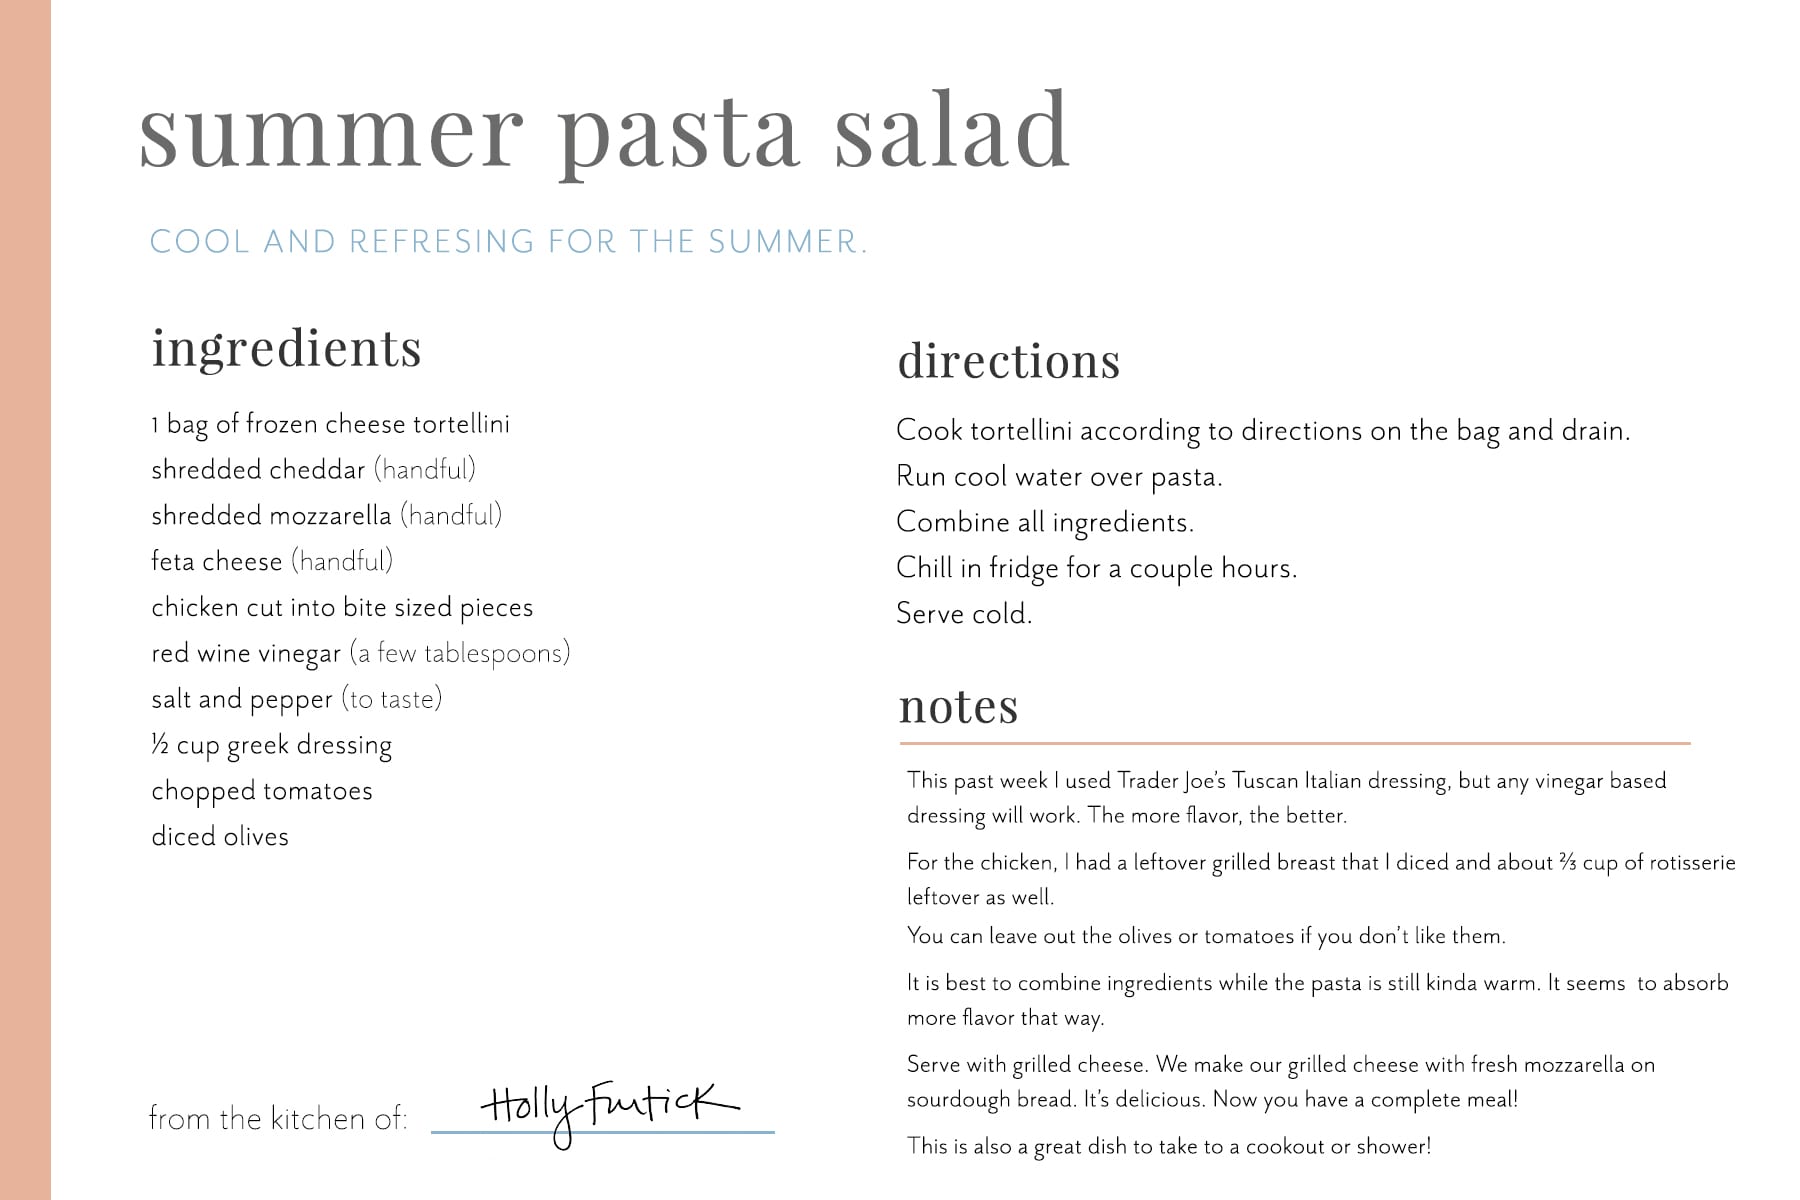 summer pasta salad
COOL AND REFRESING FOR THE SUMMER.
ingredients
1 bag of frozen cheese tortellini
shredded cheddar (handful)
shredded mozzarella (handful)
feta cheese (handful)
chicken cut into bite sized pieces
red wine vinegar (a few tablespoons)
salt and pepper (to taste)
½ cup greek dressing
chopped tomatoes
diced olives
from the kitchen of:
Holly Furtick
directions
Cook tortellini according to directions on the bag and drain.
Run cool water over pasta.
Combine all ingredients.
Chill in fridge for a couple hours.
Serve cold.
notes
This past week I used Trader Joe's Tuscan Italian dressing, but any vinegar based
dressing will work. The more flavor, the better.
For the chicken, I had a leftover grilled breast that I diced and about ⅔ cup of rotisserie
leftover as well.
You can leave out the olives or tomatoes if you don't like them.
It is best to combine ingredients while the pasta is still kinda warm. It seems  to absorb
more flavor that way.
Serve with grilled cheese. We make our grilled cheese with fresh mozzarella on
sourdough bread. It's delicious. Now you have a complete meal!
This is also a great dish to take to a cookout or shower!